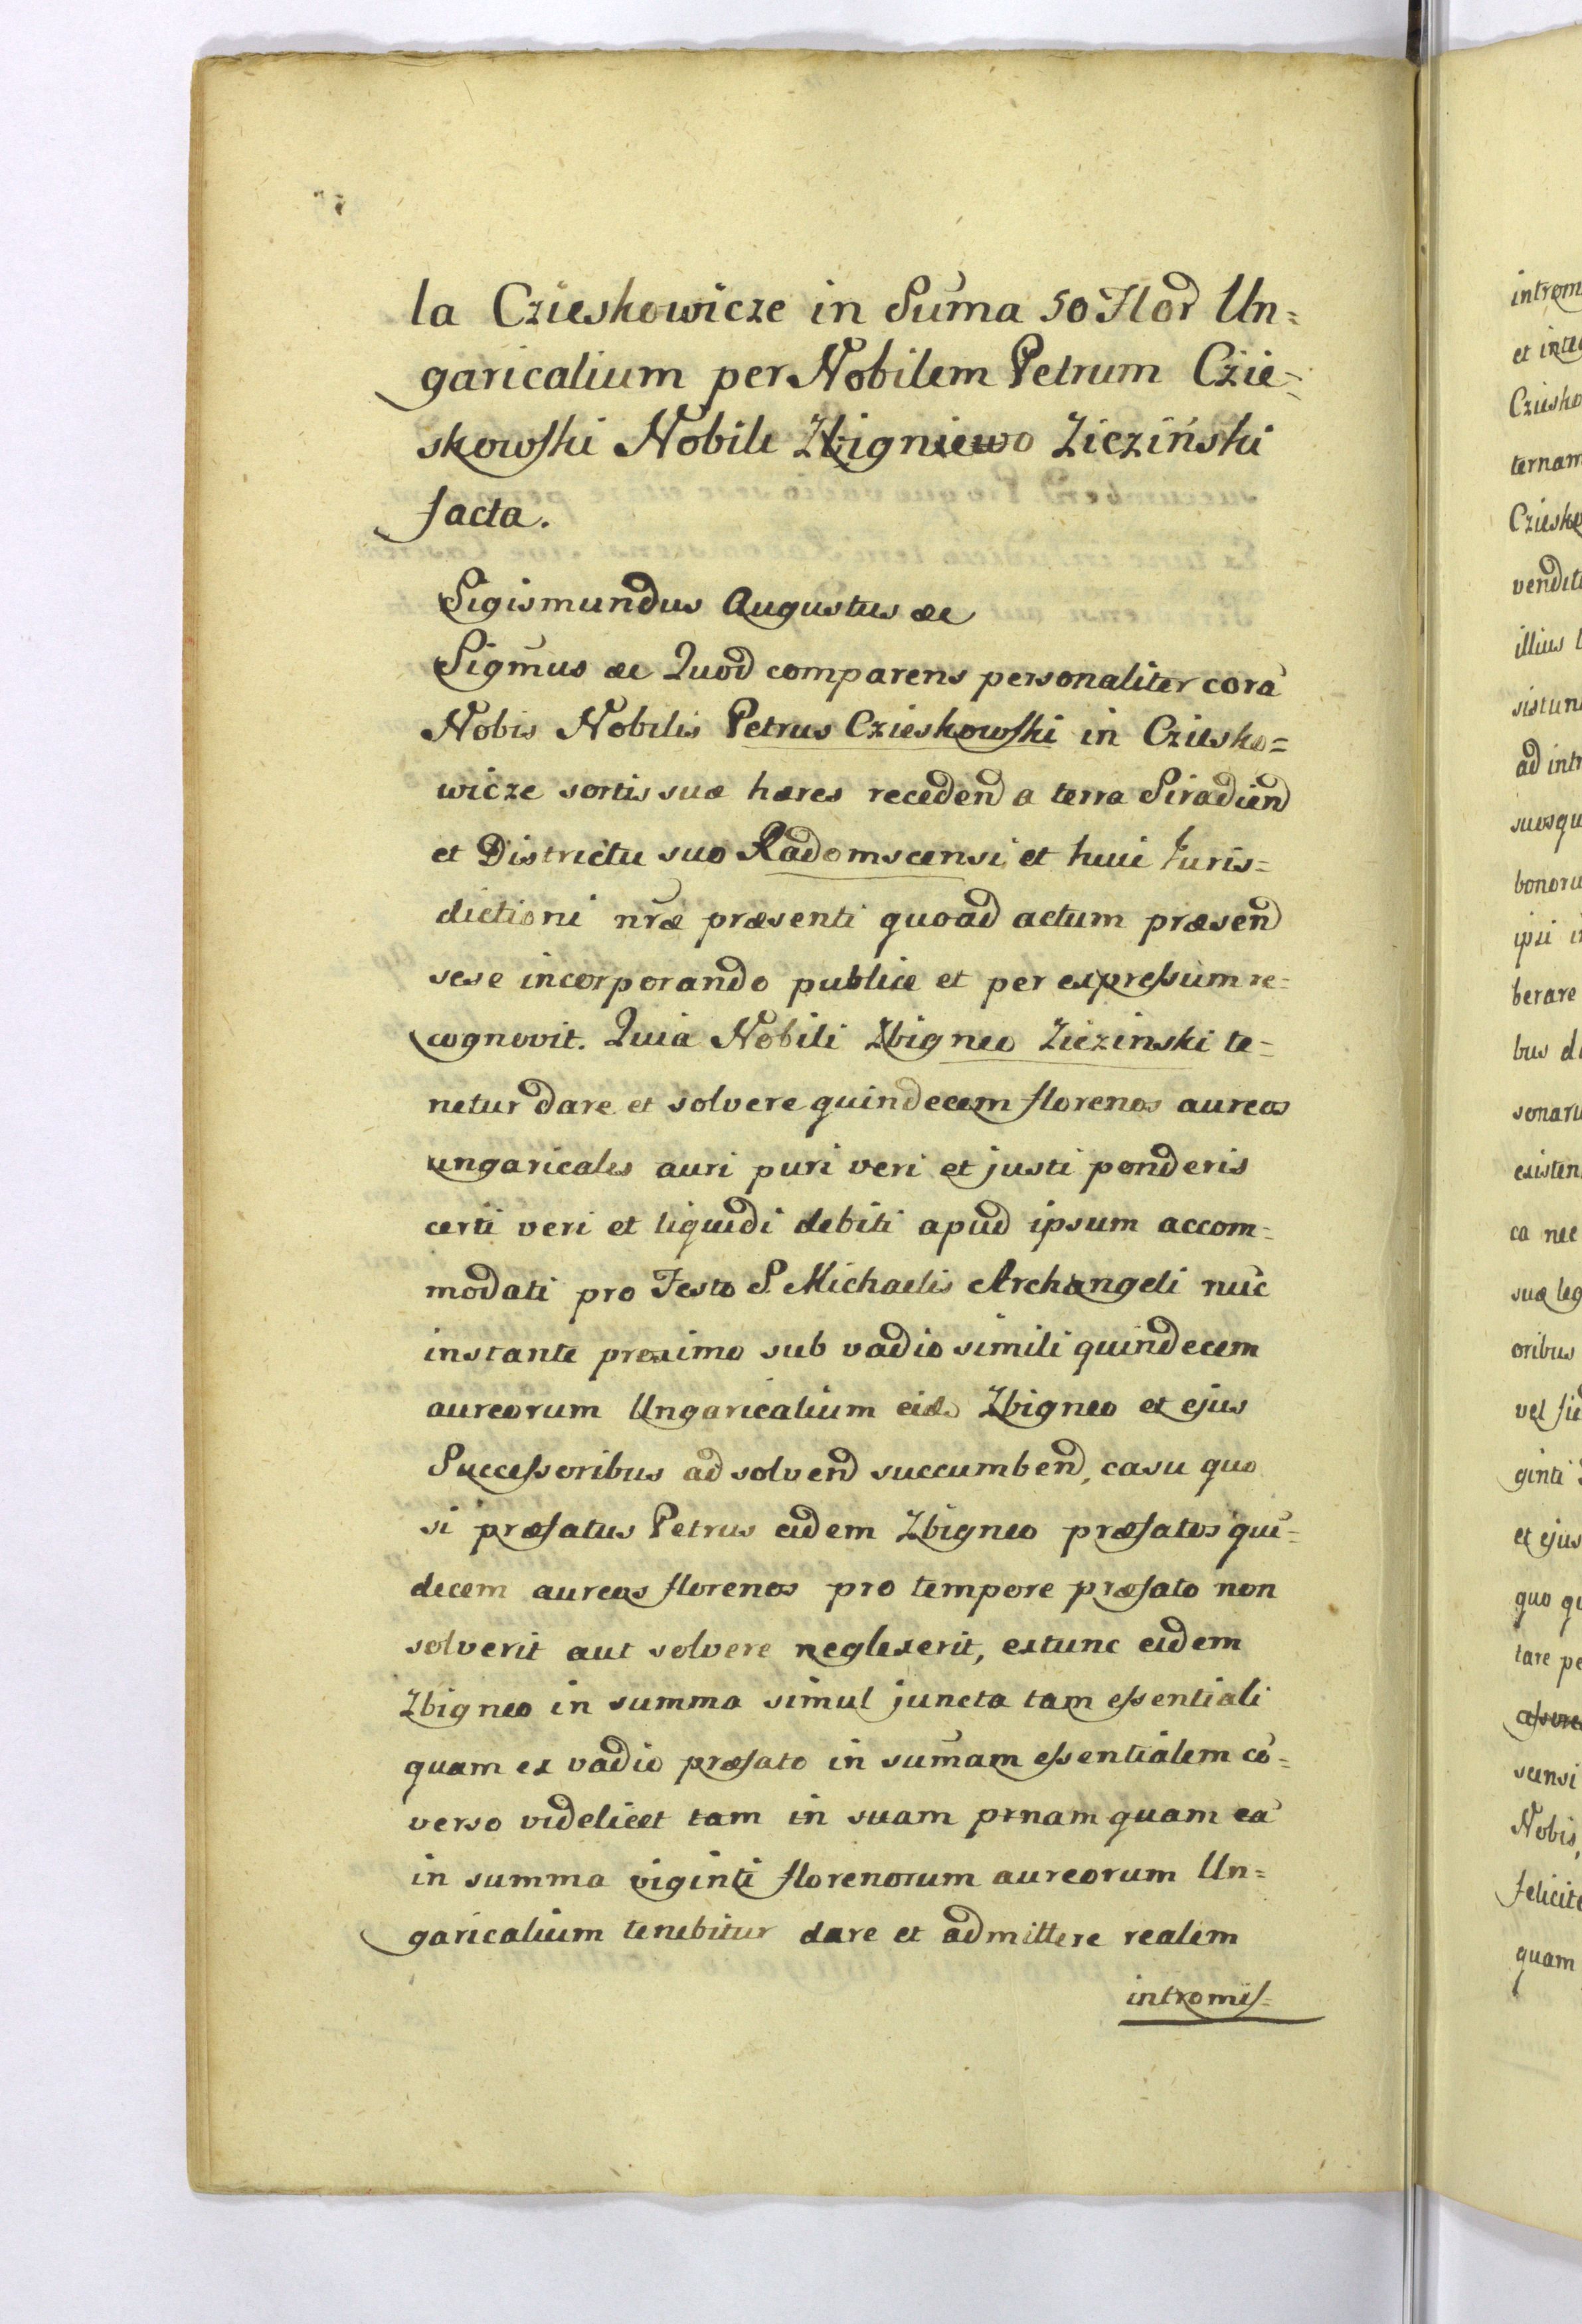 la Czieskowicze in Sum̄a 50 Flor Un=
garicalium per Nobilem Petrum Czie=
skowski Nobile Zbigniewo Zieziński
facta.
Sigismundus Augustus æc
Sigm̄us æc Quod comparens personaliter corā
Nobis Nobilis Petrus Czieskowski in Cziesko=
wicze sortis suæ hæres receden a terra Siradien
et Districtu suo Radomscensi et huic Juris=
dictioni nr̄æ præsenti quoad actum præsen
sese incorporando publice et per expressum re=
cognovit. Quia Nobili Zbigneo Ziezinski te=
netur dare et solvere quindecem florenos aureos
ungaricales auri puri veri et justi ponderis
certi veri et liquidi debiti apud ipsum accom=
modati pro Festo S. Michaelis Archangeli nūc
instante proximo sub vadio simili quindecem
aureorum Ungaricalium eid. Zbigneo et ejus
Successoribus ad solvend succumbend, casu quo
si præfatus Petrus eidem Zbigneo præfatos quī=
decem aureos florenos pro tempore præfato non
solverit aut solvere neglexerit, extunc eidem
Zbigneo in summa simul juncta tam essentiali
quam ex vadio præfato in sum̄am essentialem cō=
verso videlicet tam in suam prnam quam eā
in summa viginti florenorum aureorum Un=
garicalium tenebitur dare et admittere realem
intromis=
introm
et inte
Cziesko
ternam
Cziesko
vendit
illius
sistun
ad intr
suosqu
bonoru
ipsi i
berare
bus d
sonaru
existen
ca nec
suæ leg
oribus
vel
ginti
et ejus
quo q
tare pe
scensi
Nobis,
felicite
quam